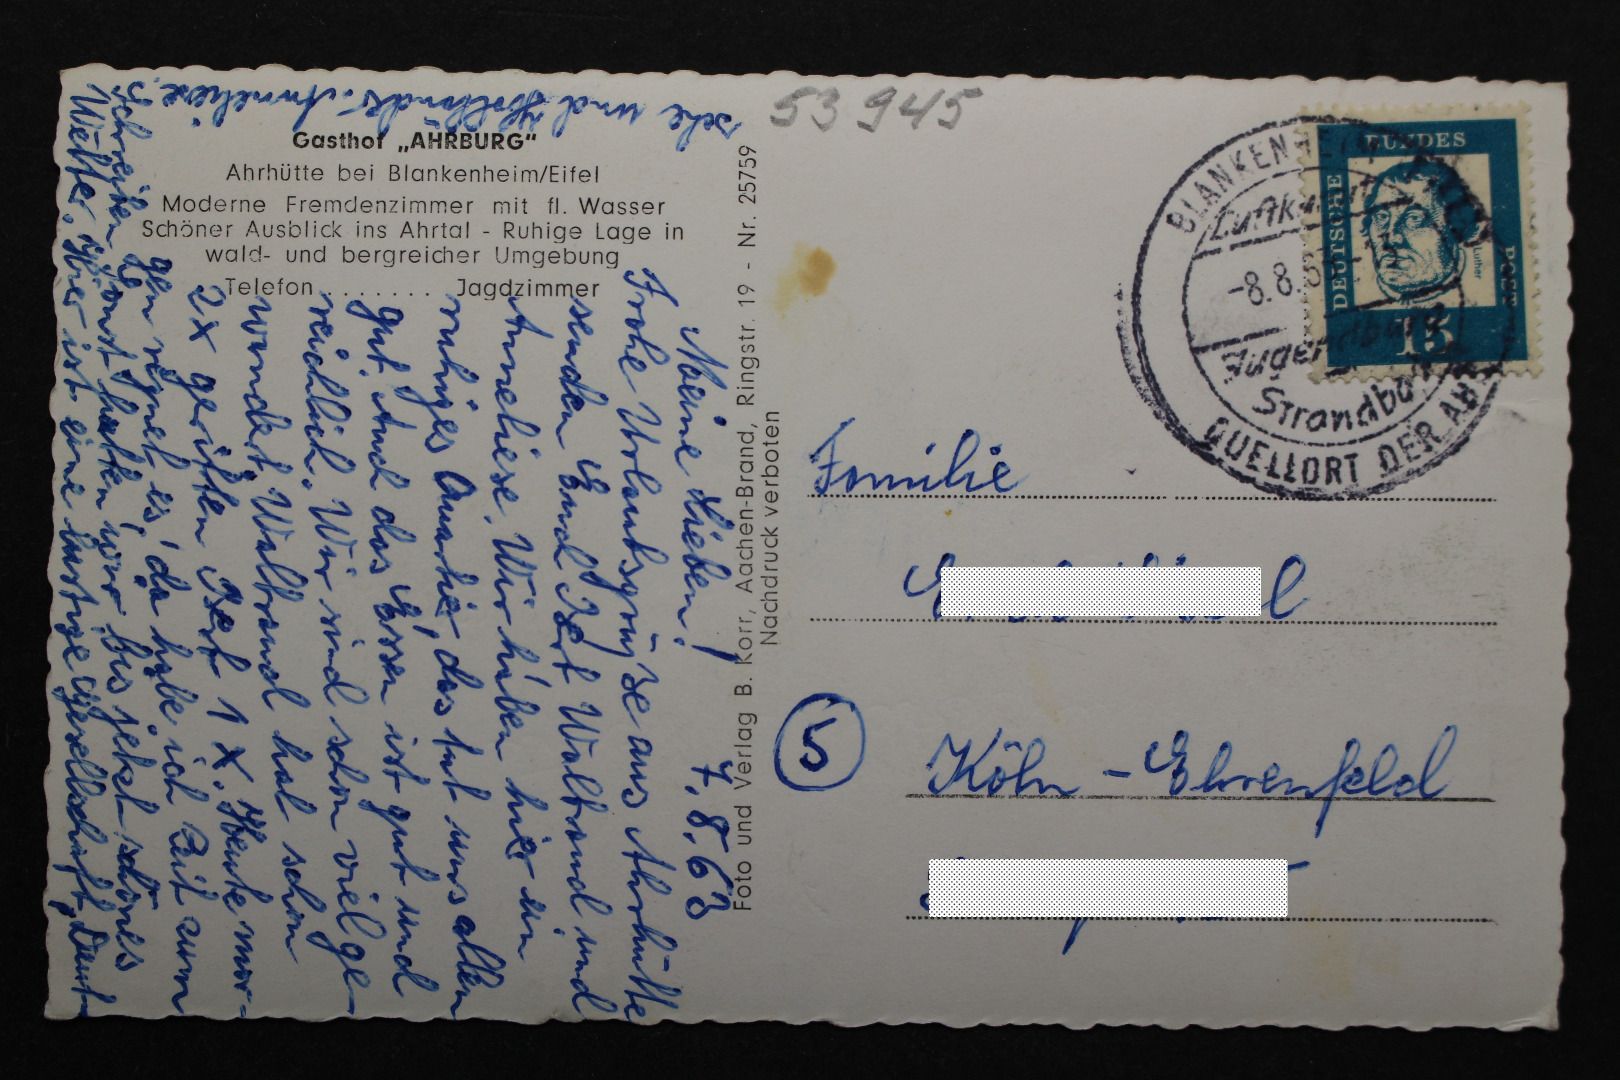 53945
Gasthof „AHRBURG“
Ahrhütte bei Blankenheim/Eifel
Moderne Fremdenzimmer mit fl. Wasser
Schöner Ausblick ins Ahrtal - Ruhige Lage in
wald- und bergreicher Umgebung
Telefon ....... Jagdzimmer
Foto und Verlag B. Korr, Aachen-Brand, Ringstr. 19 - Nr. 25759
Nachdruck verboten
7.8.63
Meine Lieben!
Frohe Urlaubsgrüße aus Ahrhütte
senden Euch Bert Waltraud und
Anneliese. Wir haben hier ein
ruhiges Quartier, das tut uns allen
gut. Auch das Essen ist gut und
reichlich. Wir sind schon viel ge-
wandert, Waltraud hat schon
2x geritten Bert 1x. Heute mor-
gen regnet es, da habe ich Zeit zum
Schreiben. Sonst hatten wir bis jetzt schönes
Wetter. Hier ist eine lustige Gesellschaft, Deut-
sche und Holländer. Anneliese
DEUTSCHE
BUNDES
POST
Luther
15
BLANKENHEIM
Luftkurort
-8.8.6
Jugendburg
Strandbad
QUELLORT DER AHR
Familie
5
Köln-Ehrenfeld